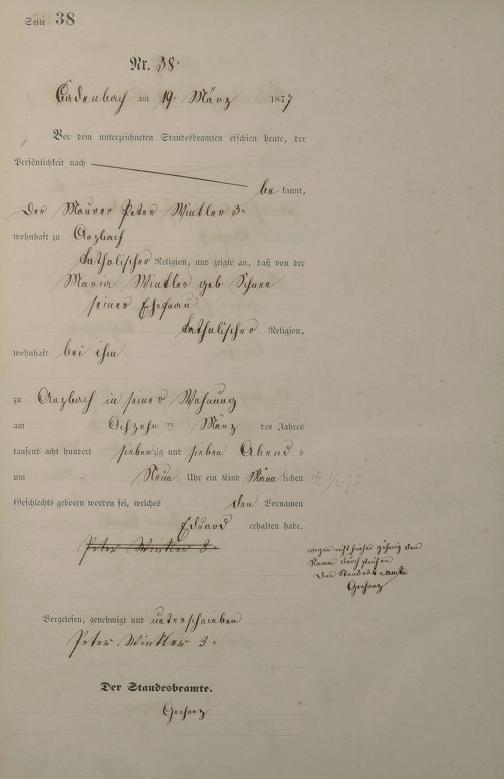 Seite 38
Nr. 38.
Cadenbach am 19. März 1877
Vor dem unterzeichneten Standesbeamten erschien heute, der
Persönlichkeit nach
be kannt,
Der Maurer Peter Winkler 3.
wohnhaft zu Arzbach
katholischer Religion, und zeigte an, daß von der
Maria Winkler geb Schnee
seiner Ehefrau
katholischer Religion,
wohnhaft bei ihm
zu Arzbach in seiner Wohnung
am Achzehn ten März des Jahres
tausend acht hundert siebenzig und sieben Abend s
um Neun Uhr ein Kind Männ lichen
Geschlechts geboren worden sei, welches den Vornamen
Eduard erhalten habe.
Peter Winkler 3.
wegen nicht hierher gehörig den
Namen durchstrichen
Der Standesbeamte
Vorgelesen, genehmigt und unterschrieben
Peter Winkler 3.
Der Standesbeamte.